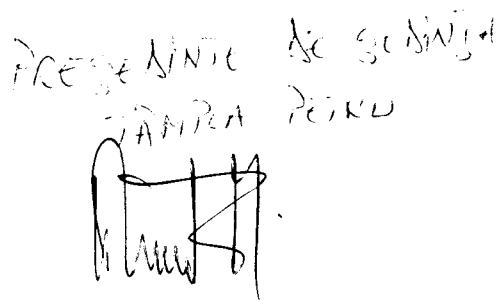 PREȘEDINTE DE ȘEDINȚĂ
TÂMPLA PETRU